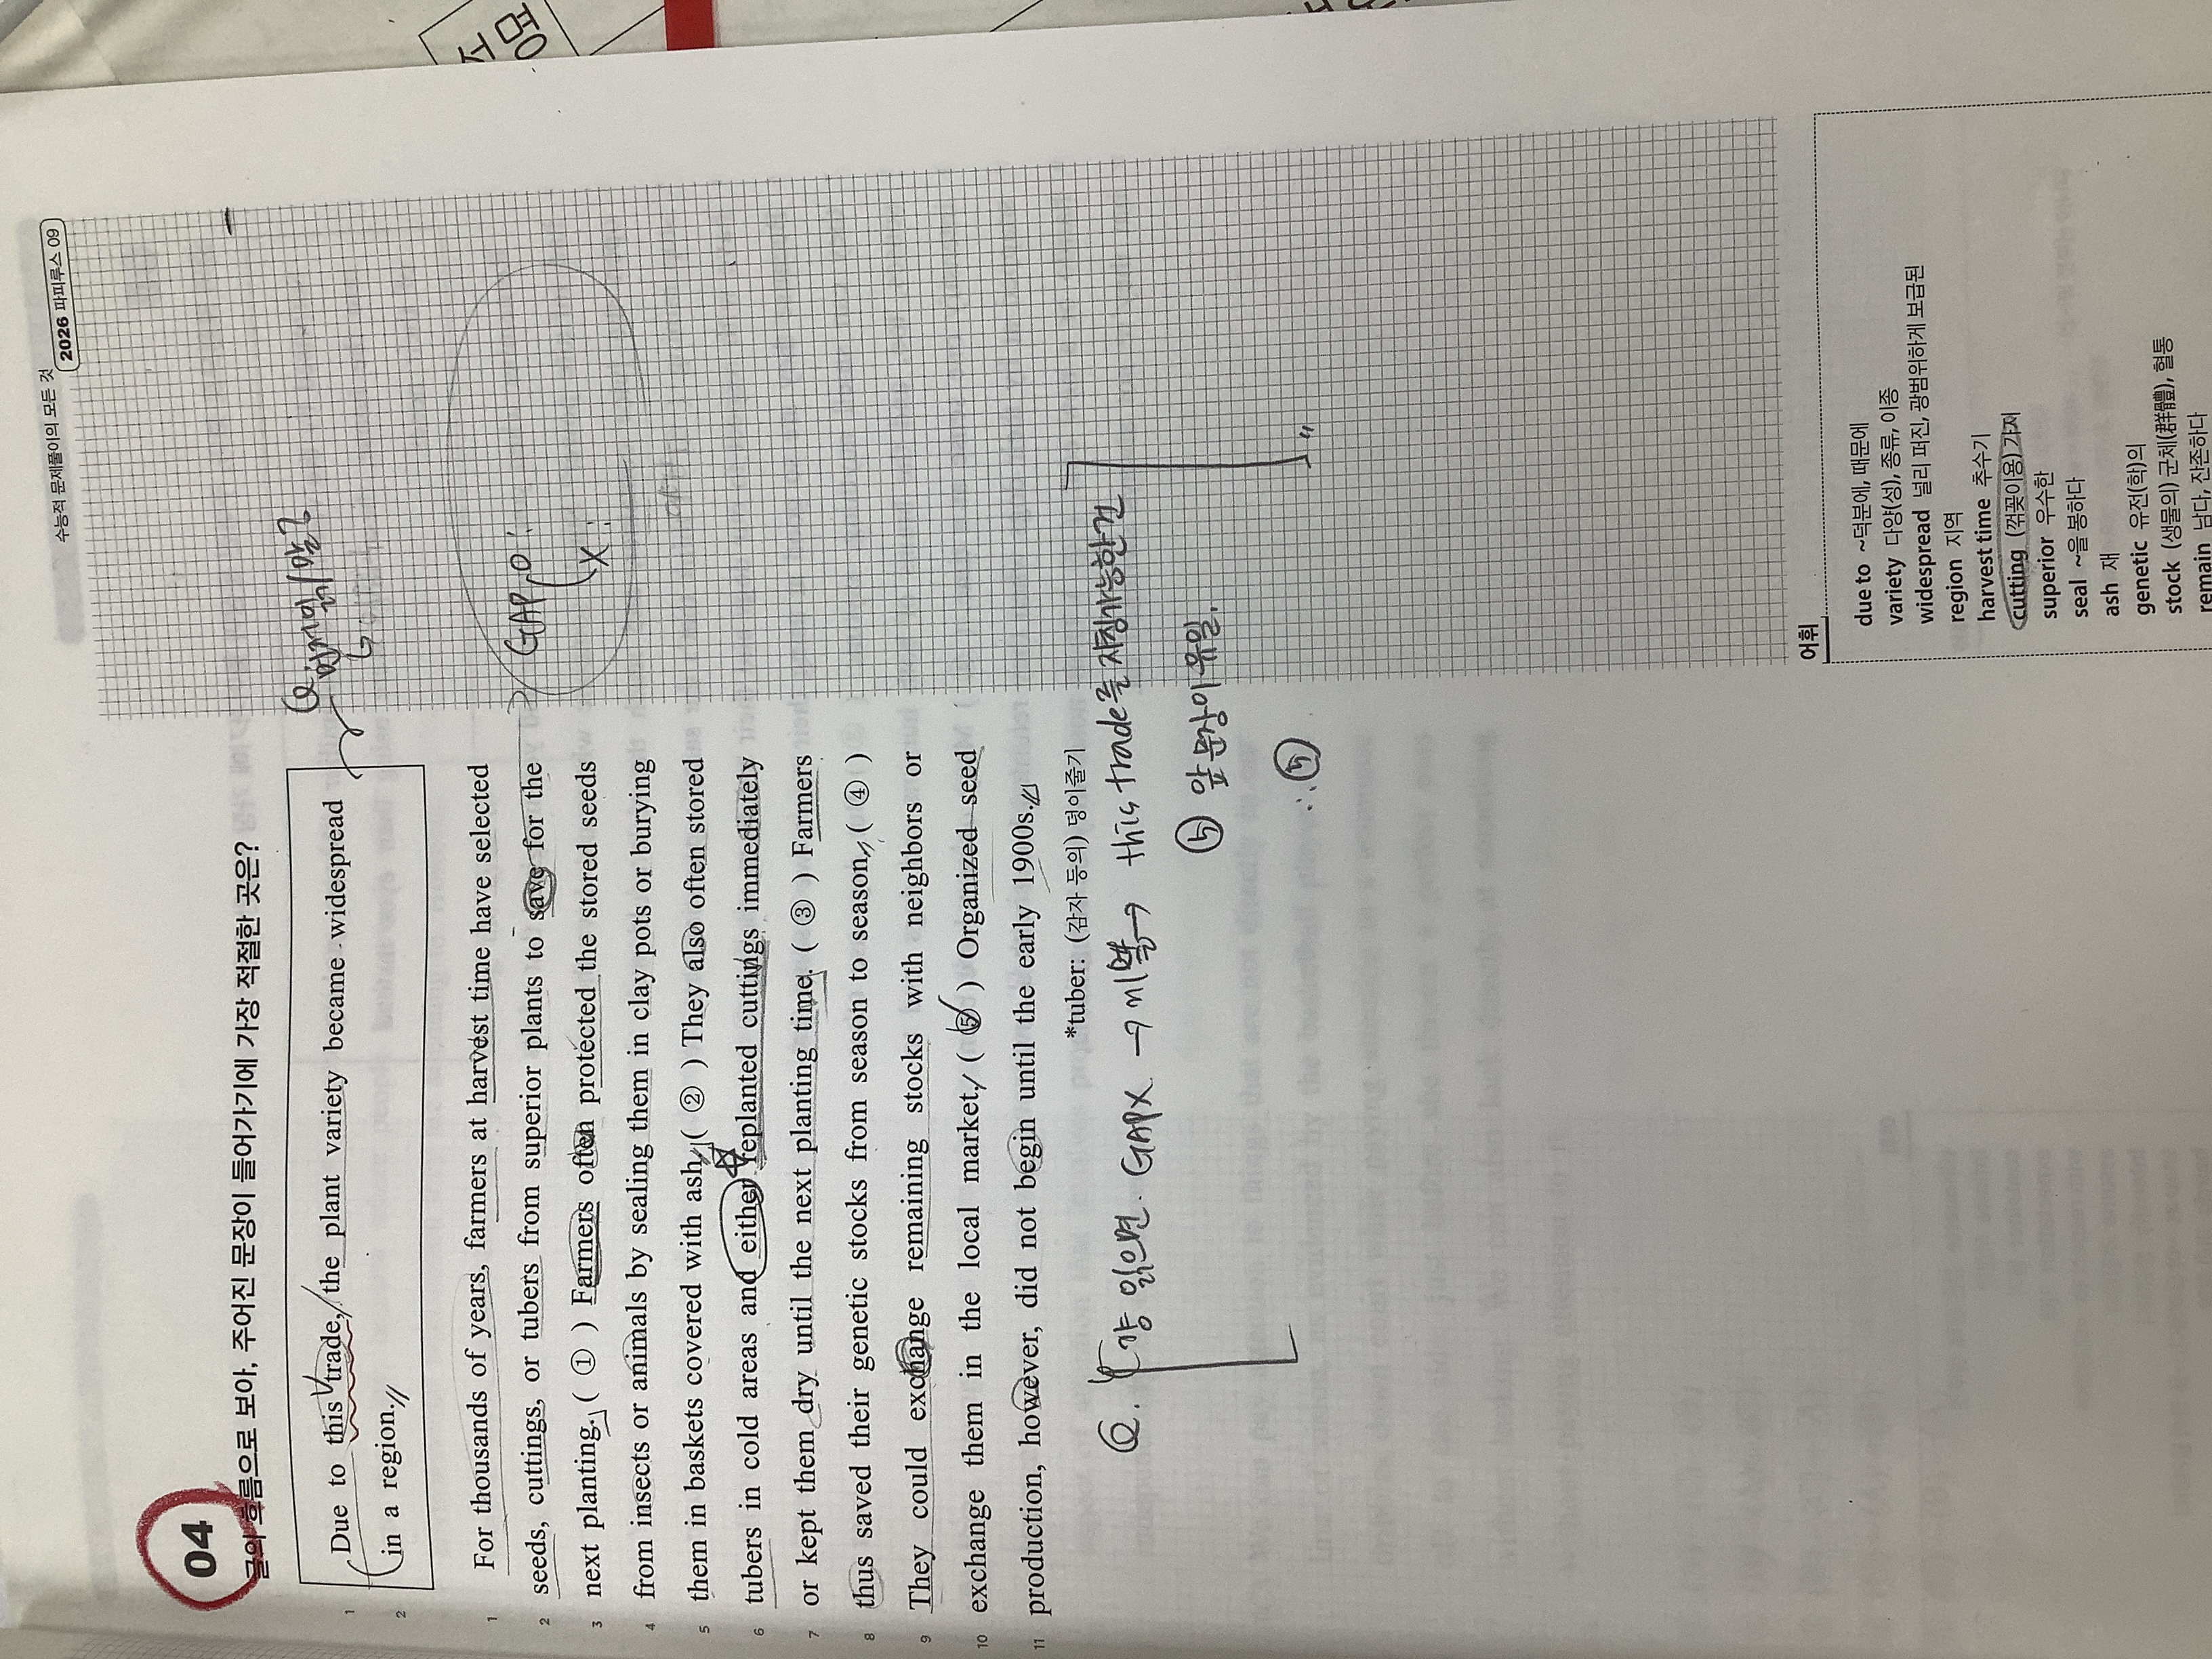 수능적 문제풀이의 모든 것
2026 파피루스 09
04
글의 흐름으로 보아, 주어진 문장이 들어가기에 가장 적절한 곳은?
1 Due to this trade, the plant variety became widespread
2 in a region.
1 For thousands of years, farmers at harvest time have selected
2 seeds, cuttings, or tubers from superior plants to save for the
3 next planting. ( ① ) Farmers often protected the stored seeds
4 from insects or animals by sealing them in clay pots or burying
5 them in baskets covered with ash. ( ② ) They also often stored
6 tubers in cold areas and either replanted cuttings immediately
7 or kept them dry until the next planting time. ( ③ ) Farmers
8 thus saved their genetic stocks from season to season. ( ④ )
9 They could exchange remaining stocks with neighbors or
10 exchange them in the local market. ( ⑤ ) Organized seed
11 production, however, did not begin until the early 1900s.
*tuber: (감자 등의) 덩이줄기
GAP O!
X!
Q. 걍 읽으면 GAP X → 맥 → this trade를 지칭가능한건
⑤ 앞 문장이 유일.
∴ ⑤
어휘
due to ~덕분에, 때문에
variety 다양(성), 종류, 이종
widespread 널리 퍼진, 광범위하게 보급된
region 지역
harvest time 추수기
cutting (꺾꽂이용) 가지
superior 우수한
seal ~을 봉하다
ash 재
genetic 유전(학)의
stock (생물의) 군체(群體), 혈통
remain 남다, 잔존하다